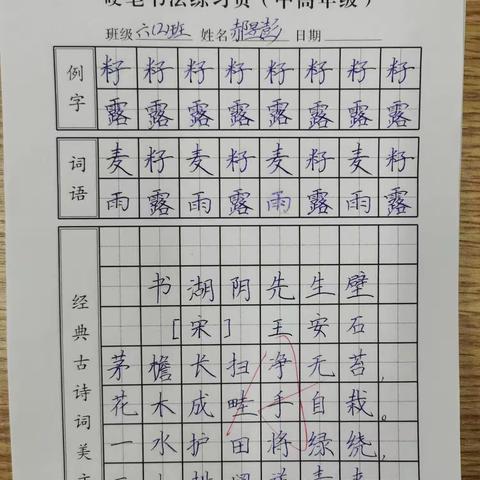 硬笔书法练习页（中高年级）
班级 六(2)班 姓名 郝 彭 日期
例字
籽 籽 籽 籽 籽 籽 籽 籽
露 露 露 露 露 露 露 露
词语
麦 籽 麦 籽 麦 籽 麦 籽
雨 露 雨 露 雨 露 雨 露
经典古诗词美
书湖阴先生壁
[宋] 王安石
茅檐长扫净无苔，
花木成畦手自栽。
一水护田将绿绕，